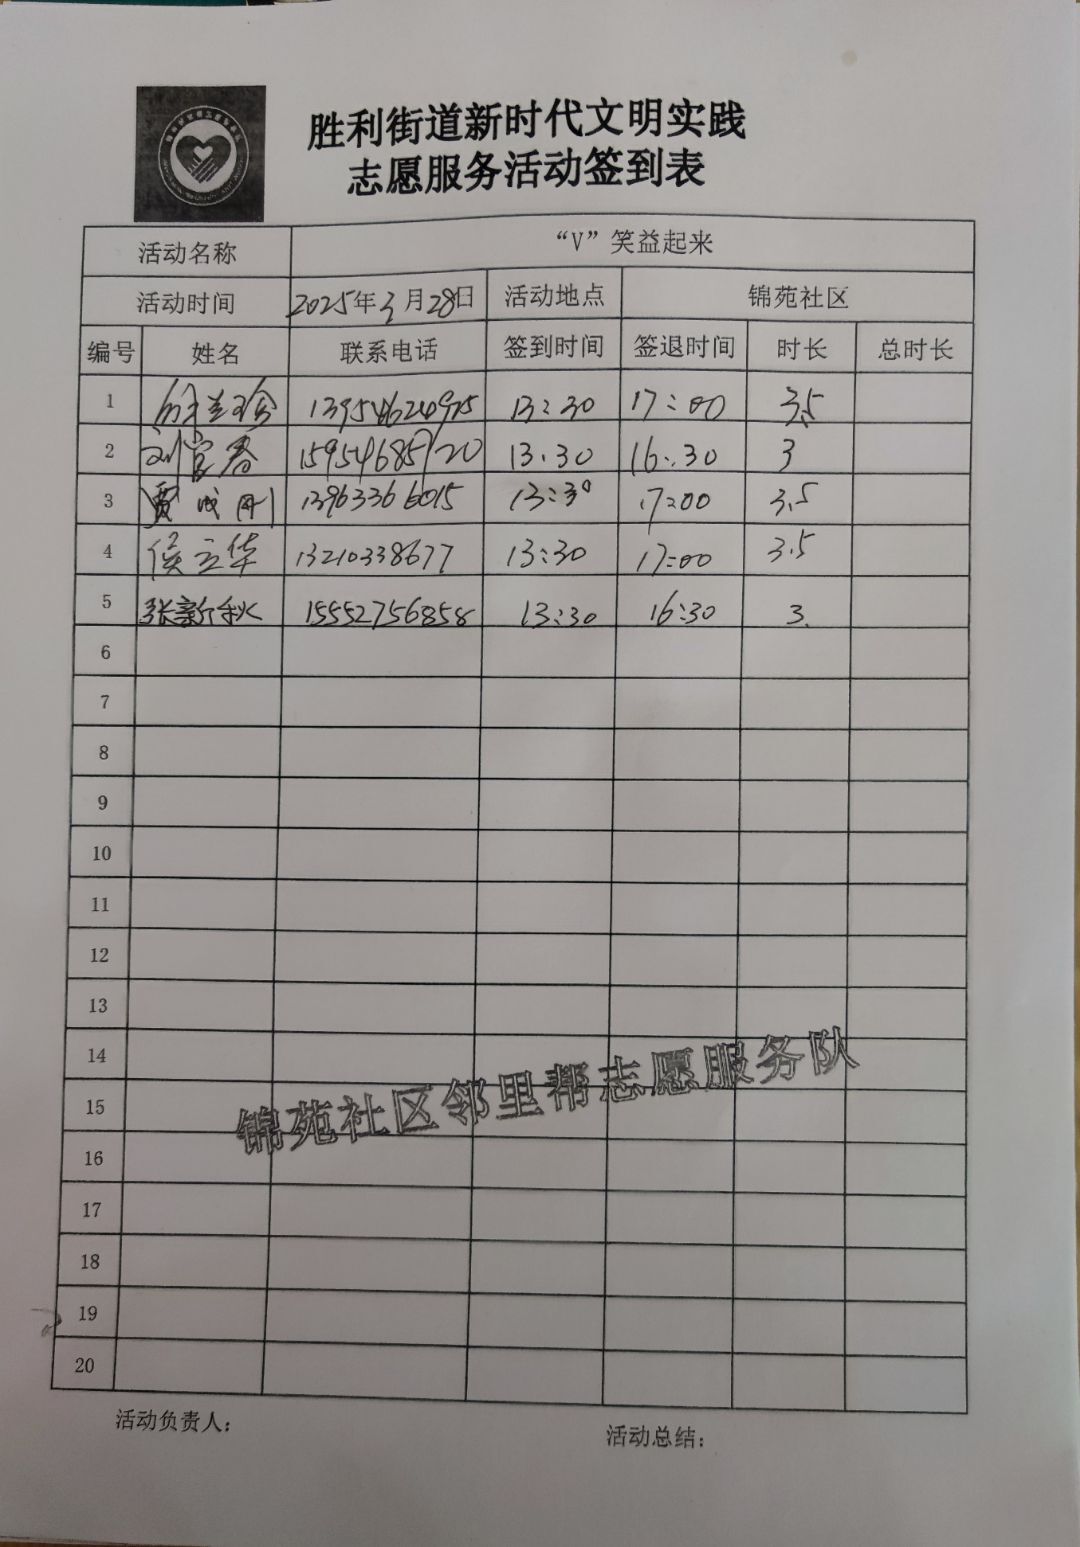 胜利街道新时代文明实践
志愿服务活动签到表
活动名称 “V”笑益起来
活动时间 2025年3月28日 活动地点 锦苑社区
编号 姓名 联系电话 签到时间 签退时间 时长 总时长
1 13954624975 13:30 17:00 3.5
2 刘官春 15954685920 13:30 16:30 3
3 贾成刚 13963366015 13:30 17:00 3.5
4 侯立华 13210338677 13:30 17:00 3.5
5 张新秋 15552756858 13:30 16:30 3
6
7
8
9
10
11
12
13
14
15
16
17
18
19
20
锦苑社区邻里帮志愿服务队
活动负责人:
活动总结: